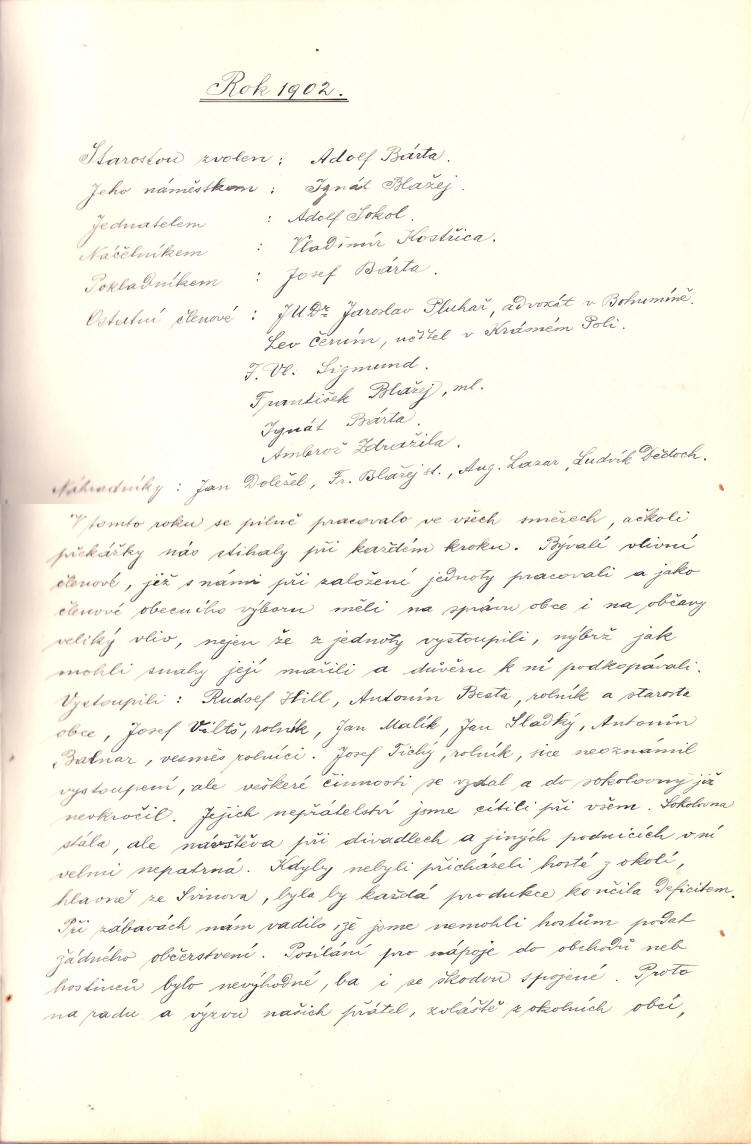 Rok 1902.
Starostou zvolen : Adolf Bárta.
Jeho náměstkem : Ignát Blažej.
Jednatelem : Adolf Sokol.
Náčelníkem : Vladimír Kostřica.
Pokladníkem : Josef Bárta.
Ostatní členové : JUDr Jaroslav Pluhař, advokát v Bohumíně.
Lev Černín, učitel v Krásném Poli.
F. Vl. Sigmund.
František Blažej, ml.
Ignát Bárta.
Ambrož Zdražila.
Náhradníky : Jan Doležel, Fr. Blažej st., Aug. Lazar, Ludvík Dědoch.
V tomto roku se pilně pracovalo ve všech směrech, ačkoli
překážky nás stihaly při každém kroku. Bývalí vlivní
členové, již s námi při založení jednoty pracovali a jako
členové obecního výboru měli na správu obce i na občany
veliký vliv, nejen že z jednoty vystoupili, nýbrž jak
mohli snahy její mařili a důvěru k ní podkopávali.
Vystoupili : Rudolf Hill, Antonín Besta, rolník a starosta
obce, Josef Viltš, rolník, Jan Malík, Jan Sladký, Antonín
Balnar, vesměs rolníci. Josef Tichý, rolník, sice neoznámil
vystoupení, ale veškeré činnosti se vzdal a do sokolovny již
nevkročil. Jejich nepřátelství jsme cítili při všem. Sokolovna
stála, ale návštěva při divadlech a jiných podnicích v ní
velmi nepatrná. Kdyby nebyli přicházeli hosté z okolí,
hlavně ze Svinova, byla by každá produkce končila deficitem.
Při zábavách nám vadilo, že jsme nemohli hostům podat
žádného občerstvení. Posílání pro nápoje do obchodů neb
hostinců bylo nevýhodné, ba i se škodou spojené. Proto
na radu a výzvu našich přátel, zvláště z okolních obcí,